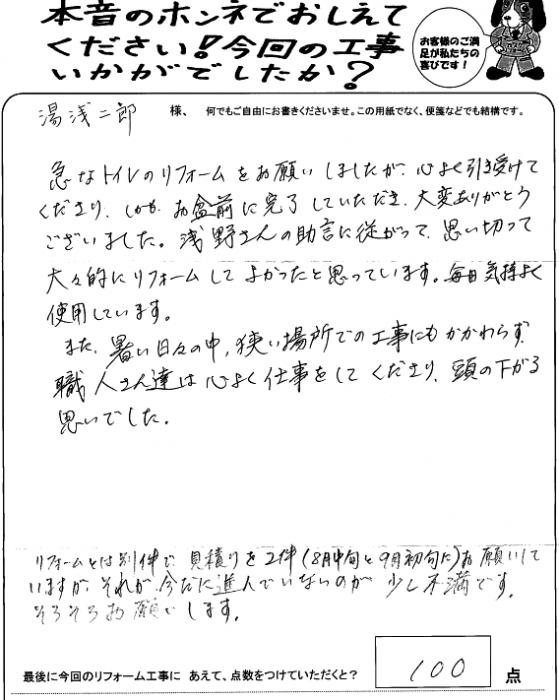 本音のホンネでおしえて
ください!今回の工事
いかがでしたか?
お客様のご満
足が私たちの
喜びです!
湯浅二郎 様、 何でもご自由にお書きくださいませ。この用紙でなく、便箋などでも結構です。
急なトイレのリフォームをお願いしましたが、心よく引き受けて
くださり、しかも、お盆前に完了していただき、大変ありがとう
ございました。浅野さんの助言に従がって、思い切って
大々的にリフォームしてよかったと思っています。毎日気持よく
使用しています。
また、暑い日々の中、狭い場所での工事にもかかわらず、
職人さん達は心よく仕事をしてくださり、頭の下がる
思いでした。
リフォームとは別件で、見積りを2件(8月中旬と9月初旬に)お願いして
いますが、それが今だに進んでいないのが少し不満です。
そろそろお願いします。
最後に今回のリフォーム工事に あえて、点数をつけていただくと? 100 点